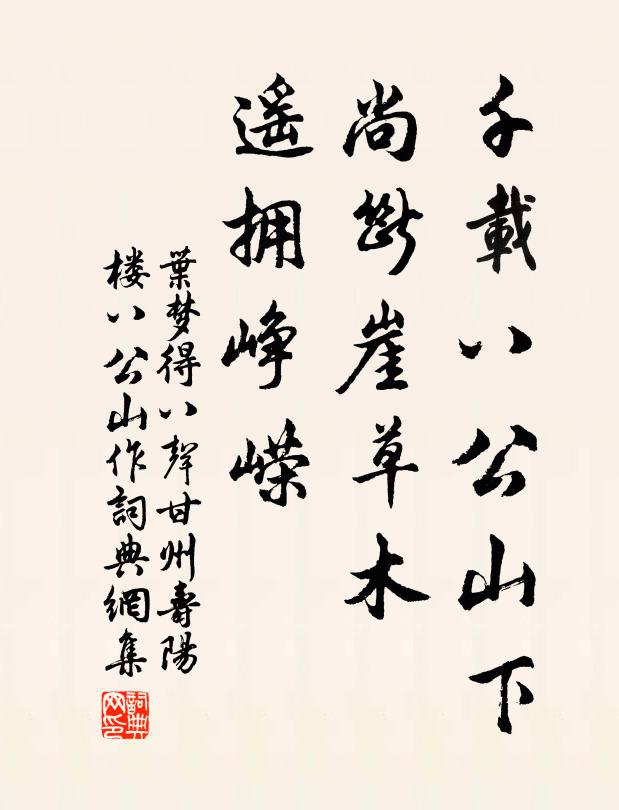 千載八公山下
尚斷崖草木
遥拥峥嵘
葉梦得八聲甘州壽陽
楼八公山作詞典網集
詞典
网印